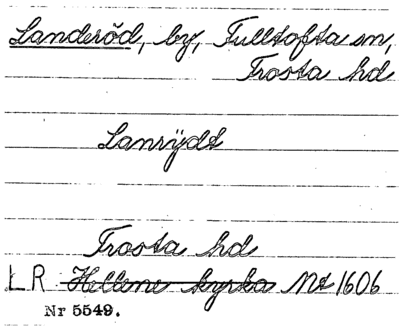 Landsröd, by, Fulltofta sn,
Frosta hd
Lanrÿdt
Frosta hd
LR Hellene kyrka Nt 1606
Nr 5549.